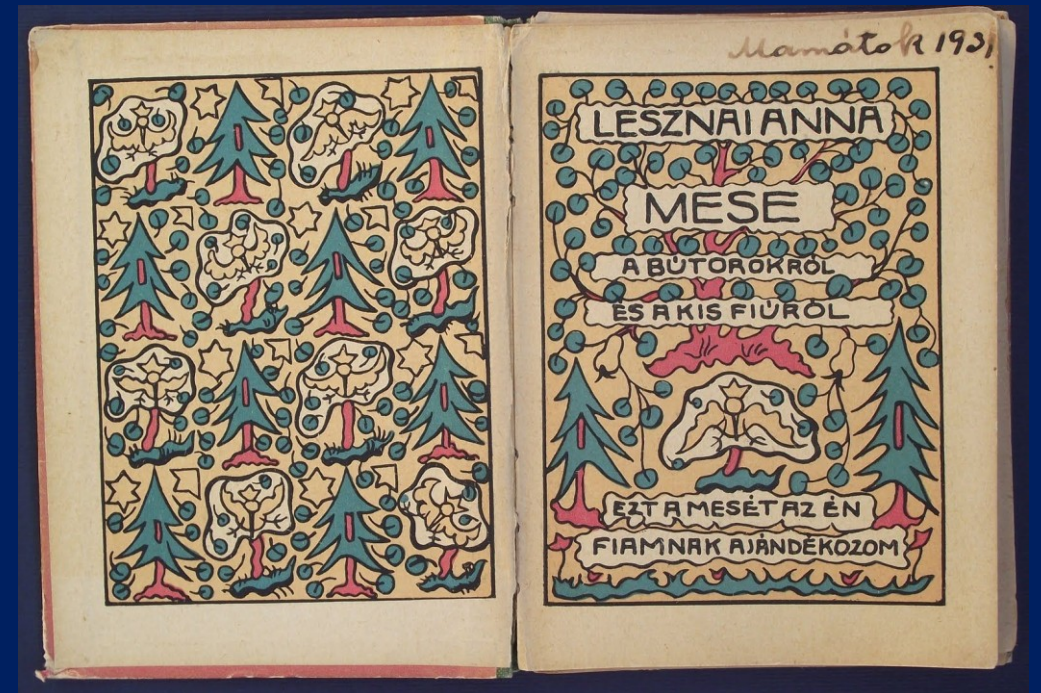 Mamátok 1931
LESZNAI ANNA
MESE
A BÚTOROKRÓL
ÉS A KIS FIÚRÓL
EZT A MESÉT AZ ÉN
FIAMNAK AJÁNDÉKOZOM